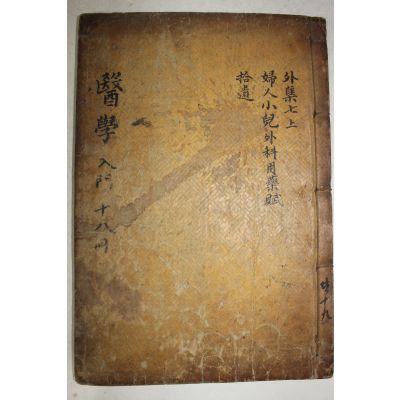 外集七上
婦人小兒外科用藥賦
拾遺
醫學入門 十八
共十九